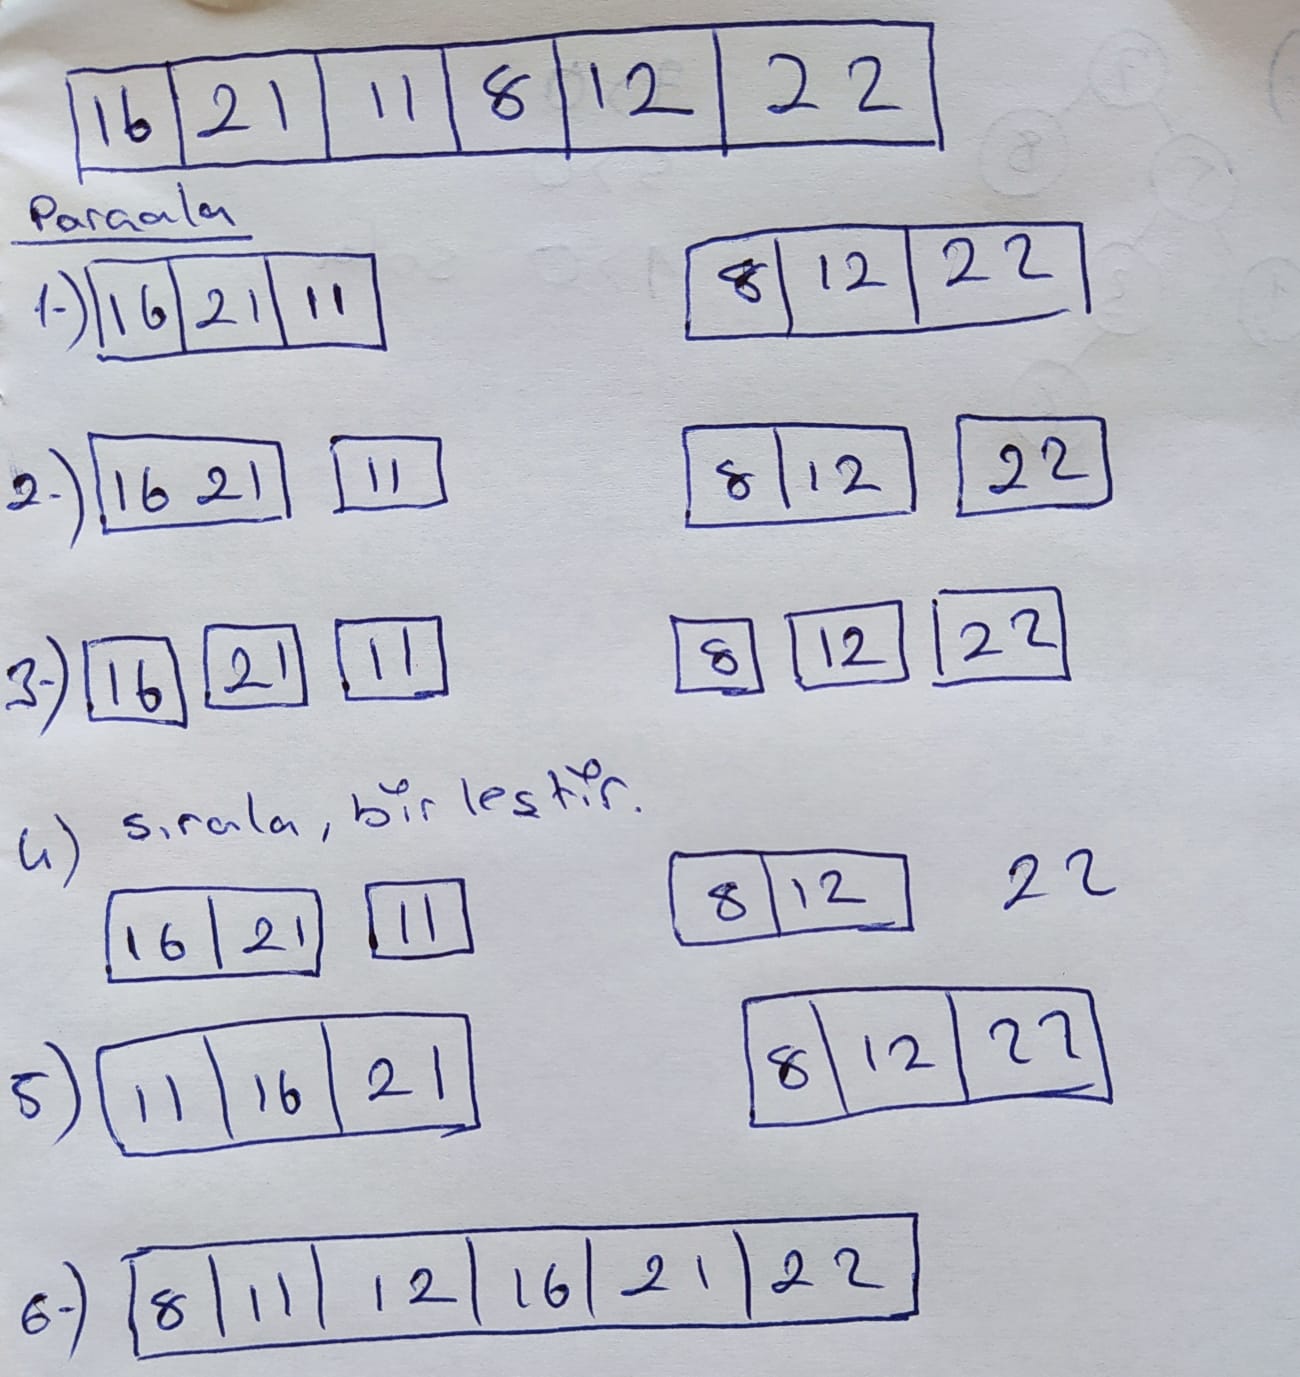 16 21 11 8 12 22
Parçala
1-) 16 21 11 8 12 22
2-) 16 21 11 8 12 22
3-) 16 21 11 8 12 22
4) sırala, birleştir.
16 21 11 8 12 22
5) 11 16 21 8 12 22
6-) 8 11 12 16 21 22